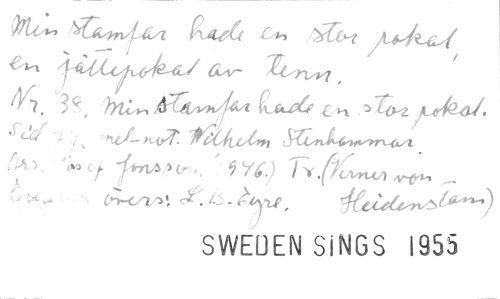 Min stamfar hade en stor pokal,
en jättepokal av tenn.
Nr. 38. Min stamfar hade en stor pokal.
Sid mel-not. Wilhelm Stenhammar.
Arr. Josef Jonsson (1946.) Tr. (Verner von
övers: L. B. Eyre. Heidenstam)
SWEDEN SINGS 1955